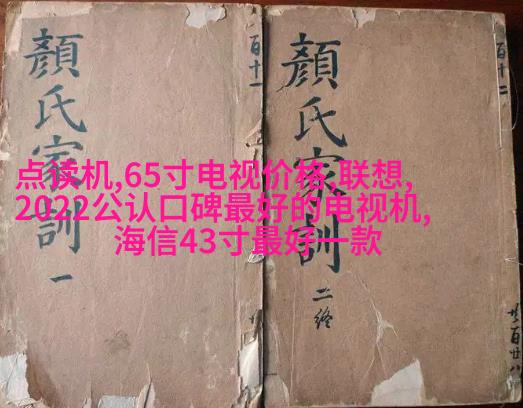 顔氏家訓
一
百十一
顔氏家訓
二终
百十二
点读机,65寸电视价格,联想,
2022公认口碑最好的电视机,
海信43寸最好一款